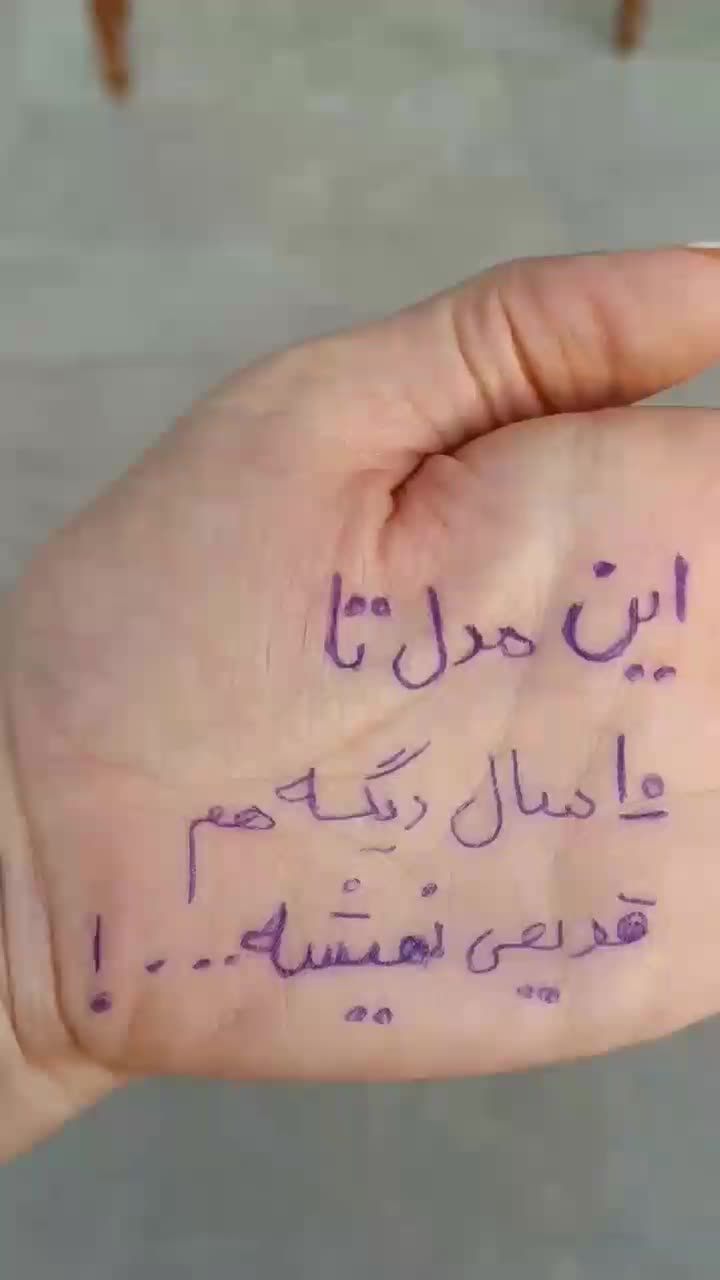 این مدل تا
۱۰ سال دیگه هم
قدیمی نمیشه...!